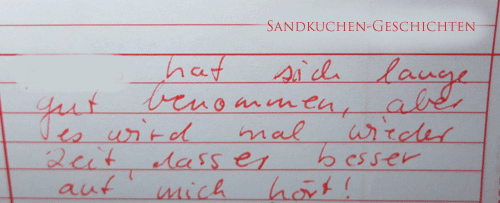 SANDKUCHEN-GESCHICHTEN
hat sich lange
gut benommen, aber
es wird mal wieder
Zeit, dass er besser
auf mich hört!